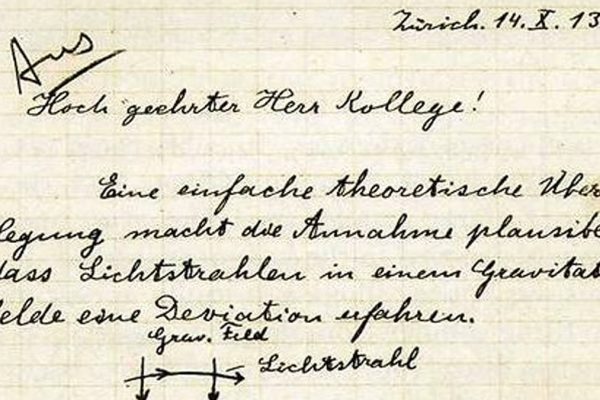 Zürich. 14. X. 13
Aus
Hoch geehrter Herr Kollege!
Eine einfache theoretische Über
legung macht die Annahme plausibe
dass Lichtstrahlen in einem Gravitat
felde eine Deviation erfahren.
Grav. Feld
Lichtstrahl